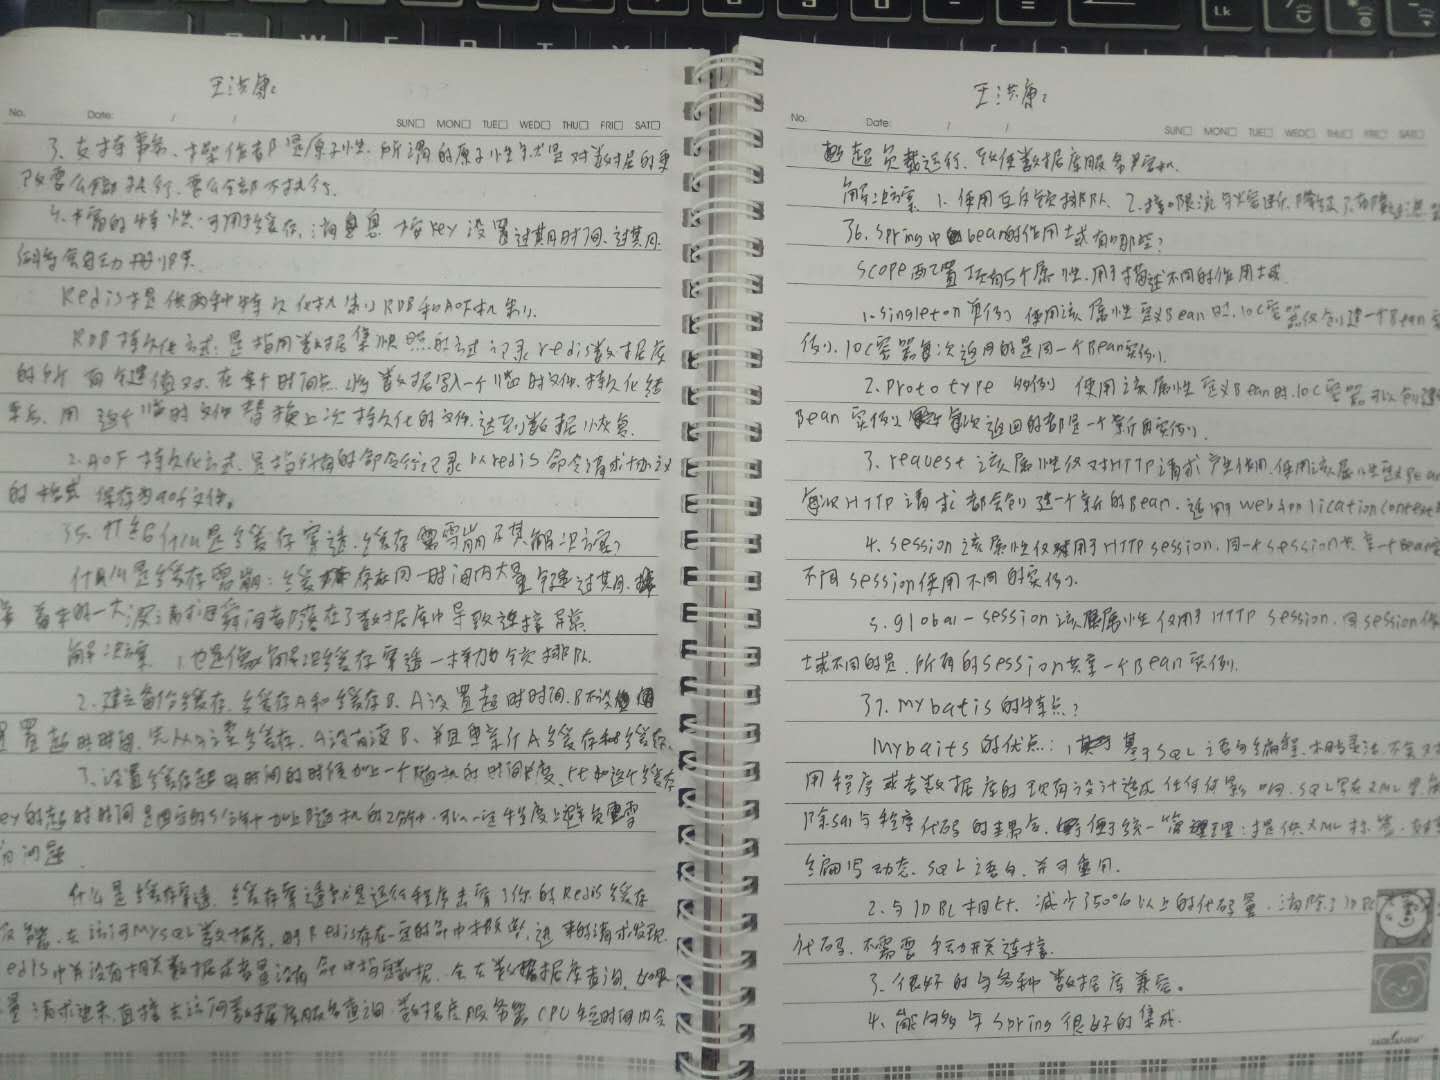 王洪康
No. Date: / /
SUN□ MON□ TUE□ WED□ THU□ FRI□ SAT□
3、支持事务、操作都是原子性、所谓的原子性就是对数据的更
改要么全部执行、要么全部不执行.
4、丰富的特性:可用于缓存,消息 按key设置过期时间、过期
后将会自动删除.
Redis提供两种持久化机制 RDB和AOF机制.
RDB持久化方式:是指用数据集快照的方式记录redis数据库
的所有键值对.在某个时间点.将数据写入一个临时文件.持久化结
束后,用这个临时文件替换上次持久化的文件.达到数据恢复.
2.AOF持久化方式、是指所有的命令行记录以redis命令请求协议
的格式保存为aof文件。
35. 什么是缓存穿透,缓存雪崩及其解决方案?
什么是缓存雪崩:缓存在同一时间内大量键过期.
着来的一大波请求瞬间都落在了数据库中导致连接异常.
解决方案 1.也是像解决缓存穿透一样加锁排队.
2.建立备份缓存,缓存A和缓存B、A设置超时时间、B不设
置超时时间,先从A读缓存、A没有读B、并且更新A缓存和缓存B.
3、设置缓存超时时间的时候加上一个随机的时间长度、比如这个缓存
ey的超时时间是固定的5分钟加上随机的2分钟.可以一定程度上避免雪
的问题.
什么是缓存穿透、缓存穿透就是运行程序去看了你的Redis缓存
服务器、去访问MySQL数据库,由于Redis存在一定的命中概率,进来的请求发现
edis中并没有相关数据或者是没有命中指定数据,会去数据库查询,如果
量请求进来,直接去访问数据库服务查询.数据库服务器CPU短时间内会
王洪康
No. Date: / /
SUN□ MON□ TUE□ WED□ THU□ FRI□ SAT□
超负载运行、致使数据库服务宕机.
解决方案 1.使用互斥锁排队 2.接口限流与熔断、降级
36. Spring中bean的作用域有哪些?
Scope配置项有5个属性、用于描述不同的作用域.
1.Singleton 单例 使用该属性定义Bean时,IOC容器仅创建一个Bean实
例,IOC容器每次返回的是同一个Bean实例.
2.Prototype 多例 使用该属性定义Bean时.IOC容器可以创建
Bean实例,每次返回的都是一个新的实例.
3.request 该属性仅对HTTP请求产生作用,使用该属性定义Bean
每次HTTP请求都会创建一个新的Bean.适用WebApplicationContext
4.Session 该属性仅用于HTTP session,同一个session共享一个Bean
不同session使用不同的实例.
5.global-session该属性仅用于HTTP Session,同session作
域不同的是,所有的session共享一个Bean实例.
37. mybatis的特点?
Mybaits的优点:1.基于SQL语句编程,相当灵活,不会对
用程序或者数据库的现有设计造成任何影响,SQL写在XML里,
除sql与程序代码的耦合,便于统一管理:提供XML标签,支持
编写动态SQL语句,并可重用.
2.与JDBC相比、减少了50%以上的代码量、消除了JDBC
代码、不需要手动开关连接.
3.很好的与各种数据库兼容。
4.能够与Spring很好的集成.